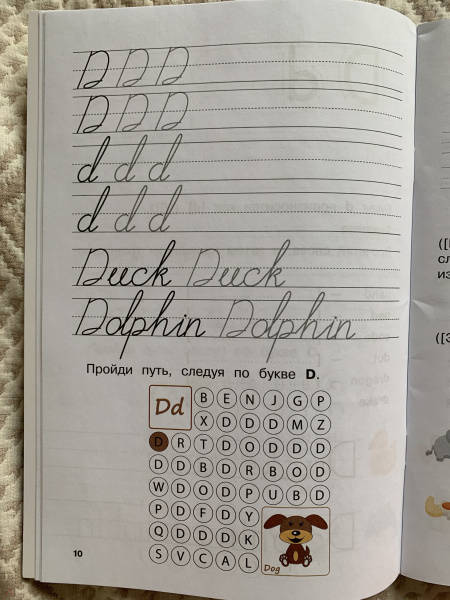 D D D
D D D
d d d
d d d
Duck Duck
Dolphin Dolphin
Пройди путь, следуя по букве D.
Dd
B E N J G P
X D D D M Z
D R T D O D D D
D D B D R B O D
W D O D P U B D
P D F D Y
Q D D D K
S V C A L
Dog
10
([
сл
из
([З